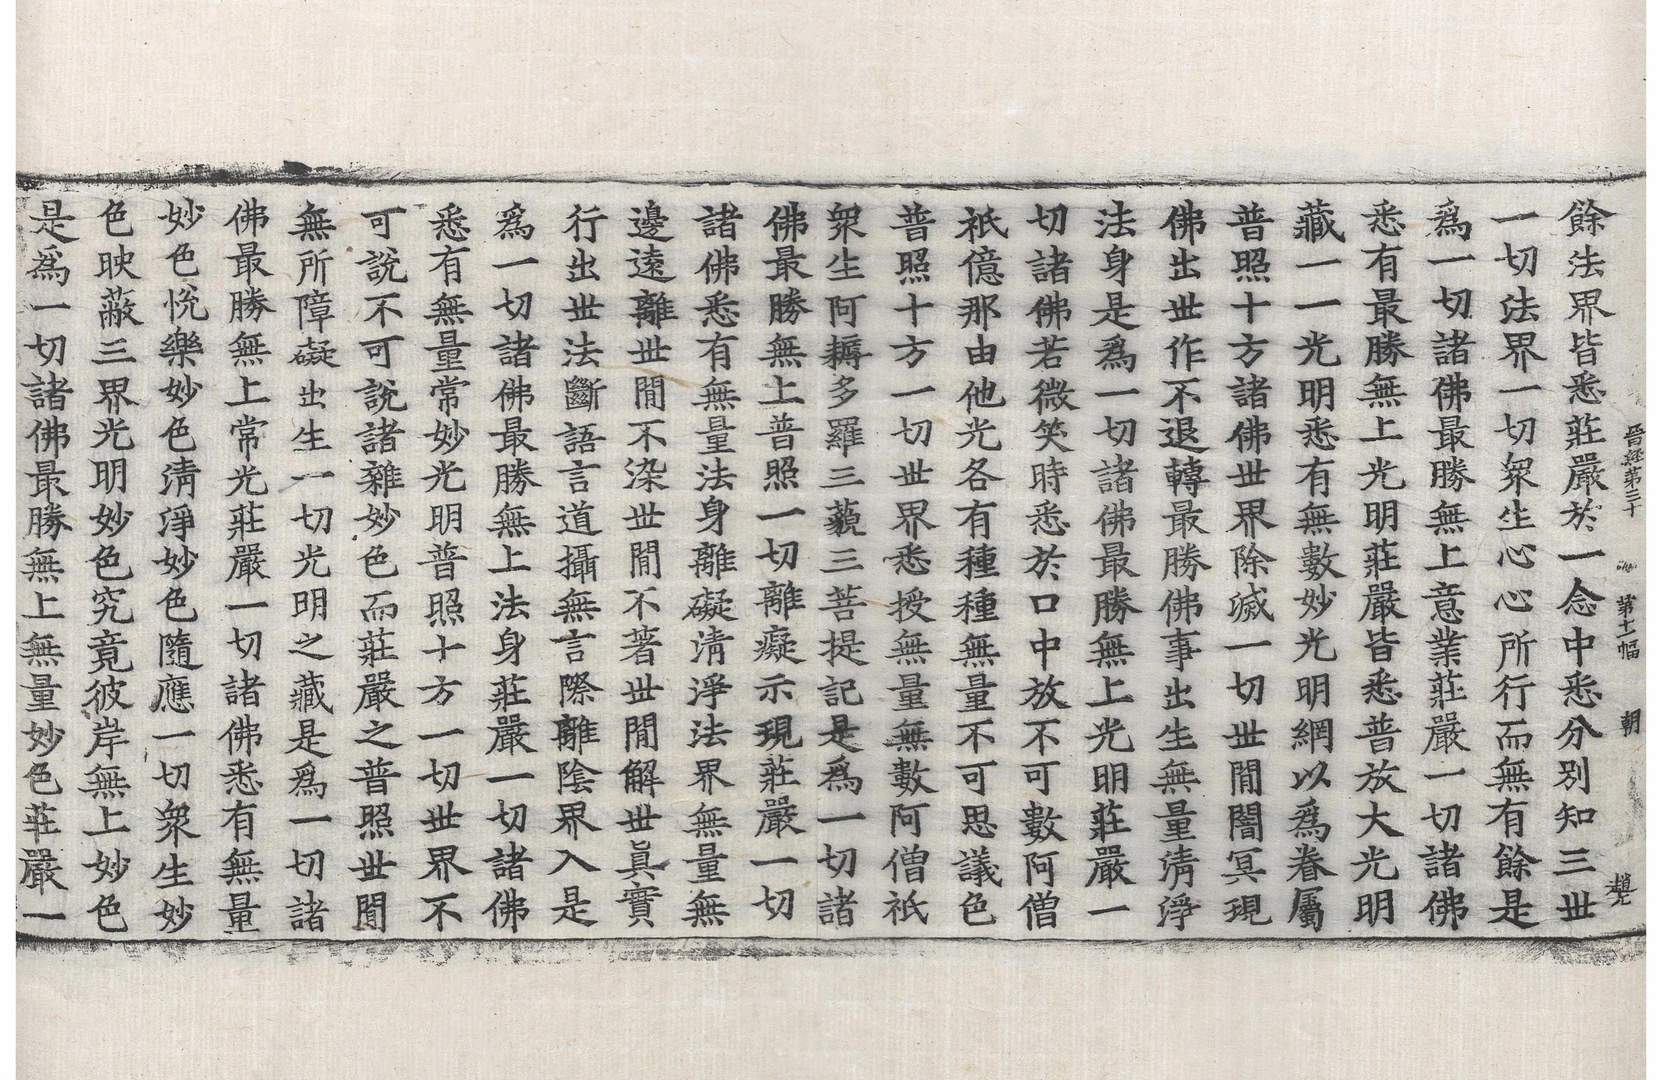 晉經第三十 第十二幅 朝 趙九
餘法界皆悉莊嚴於一念中悉分別知三世
一切法界一切衆生心心所行而無有餘是
爲一切諸佛最勝無上意業莊嚴一切諸佛
悉有最勝無上光明莊嚴皆悉普放大光明
藏一一光明悉有無數妙光明網以爲眷屬
普照十方諸佛世界除滅一切世閒闇冥現
佛出世作不退轉最勝佛事出生無量淸淨
法身是爲一切諸佛最勝無上光明莊嚴一
切諸佛若微笑時悉於口中放不可數阿僧
祇億那由他光各有種種無量不可思議色
普照十方一切世界悉授無量無數阿僧祇
衆生阿耨多羅三藐三菩提記是爲一切諸
佛最勝無上普照一切離癡示現莊嚴一切
諸佛悉有無量法身離礙淸淨法界無量無
邊遠離世閒不染世閒不著世閒解世眞實
行出世法斷語言道攝無言際離陰界入是
爲一切諸佛最勝無上法身莊嚴一切諸佛
悉有無量常妙光明普照十方一切世界不
可說不可說諸雜妙色而莊嚴之普照世閒
無所障礙出生一切光明之藏是爲一切諸
佛最勝無上常光莊嚴一切諸佛悉有無量
妙色悅樂妙色淸淨妙色隨應一切衆生妙
色映蔽三界光明妙色究竟彼岸無上妙色
是爲一切諸佛最勝無上無量妙色莊嚴一